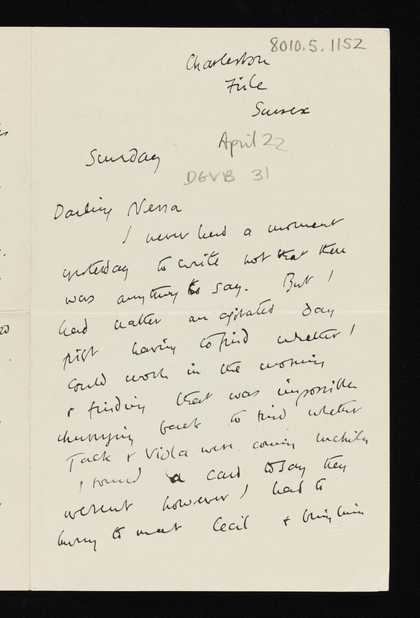 8010.5.1152
Charleston
Firle
Sussex
April 22
Sunday
DGVB 31
Darling Nessa
I never had a moment
yesterday to write not that there
was anything to say. But I
had rather an agitated day
first having to find whether I
could work in the morning
& finding that was impossible
hurrying back to find whether
Jack & Viola were coming luckily
I found a card to say they
weren't however I had to
hurry to meet Cecil & bring him